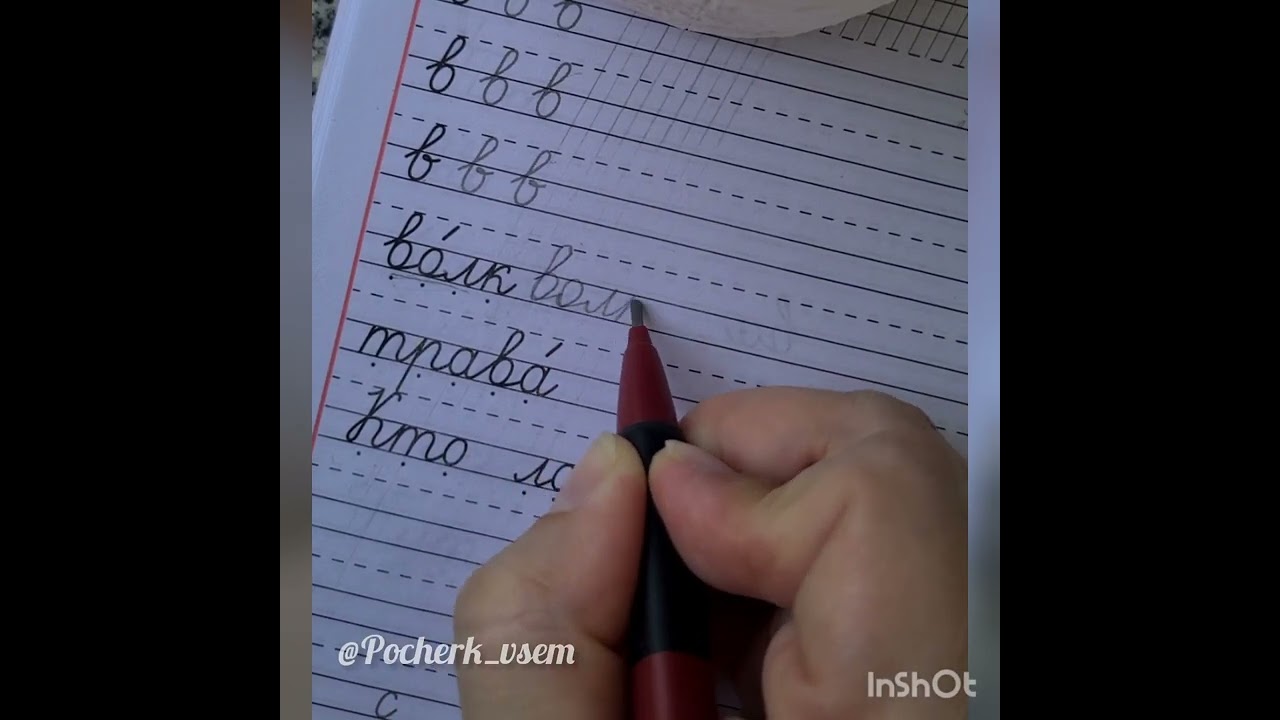 в в в
в в в
в в в
во́лк вол
трава́
Кто
@Pocherk_vsem
InShOt
с